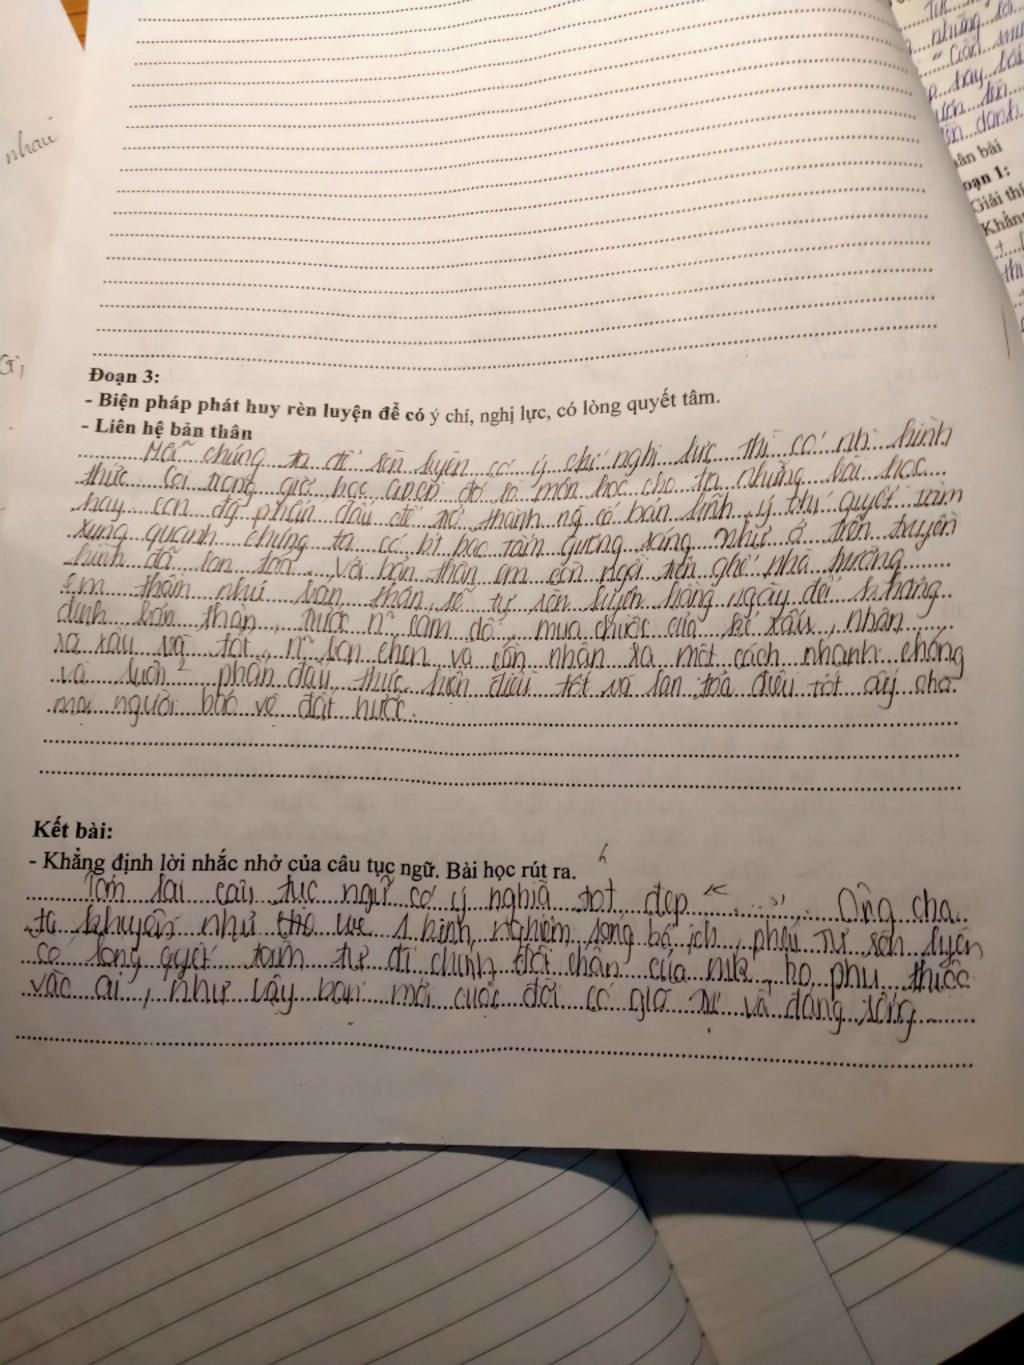 nhau
Đoạn 3:
- Biện pháp phát huy rèn luyện để có ý chí, nghị lực, có lòng quyết tâm.
- Liên hệ bản thân
chúng ta để rèn luyện có ý chí nghị lực thì có nh hình
thức trong giờ học GDCD đó là môn học cho ta những bài học
hay con đg phấn đấu để trở thành ng có bản lĩnh, ý thí quyết tâm
xung quanh chúng ta có bt bao tấm gương sáng như ở trên truyền
hình đã lan toả. Với bản thân em còn ngồi trên ghế nhà trường
Em thầm nhủ bản thân sẽ tự rèn luyện hàng ngày để kh đáng
danh bản thân, trước n cám dỗ, mưu chước của kẻ xấu, nhận
ra xấu và tốt, n bon chen và cần nhận ra một cách nhanh chóng
và luôn phấn đấu thực hiện điều tốt và lan toả điều tốt ấy cho
mọi người bảo vệ đất nước.
Kết bài:
- Khẳng định lời nhắc nhở của câu tục ngữ. Bài học rút ra.
Tóm lại câu tục ngữ có ý nghĩa tốt đẹp "....". Ông cha
ta khuyên như 1 kinh nghiệm sống bổ ích, phải tự rèn luyện
có lòng quyết tâm tự đi chính đôi chân của mk, ko phụ thuộc
vào ai, như vậy bạn mới cuộc đời có giá trị và đáng sống